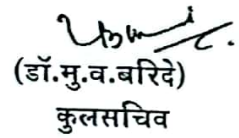 (डॉ.मु.व.बरिदे)
कुलसचिव